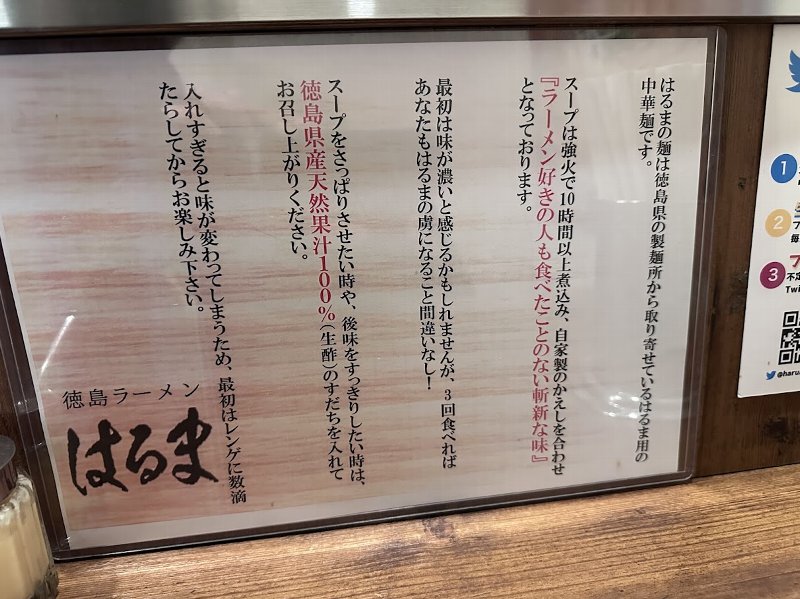 はるまの麺は徳島県の製麺所から取り寄せているはるま用の
中華麺です。
スープは強火で10時間以上煮込み、自家製のかえしを合わせ
『ラーメン好きの人も食べたことのない斬新な味』
となっております。
最初は味が濃いと感じるかもしれませんが、3回食べれば
あなたもはるまの虜になること間違いなし！
スープをさっぱりさせたい時や、後味をすっきりしたい時は、
徳島県産天然果汁100％（生酢）のすだちを入れて
お召し上がりください。
入れすぎると味が変わってしまうため、最初はレンゲに数滴
たらしてからお楽しみ下さい。
徳島ラーメン
はるま
1
2
3
不定
Twi
@haru